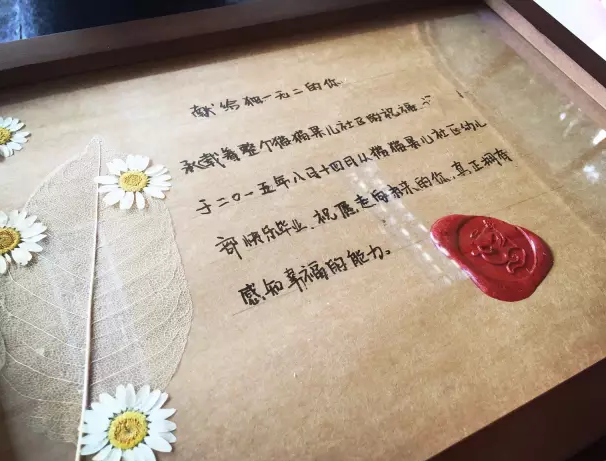 献给独一无二的你
承载着整个猫猫果儿社区的祝福,
于二〇一五年八月十四日从猫猫果儿社区幼儿
部快乐毕业,祝愿走向未来的你,真正拥有
感知幸福的能力。